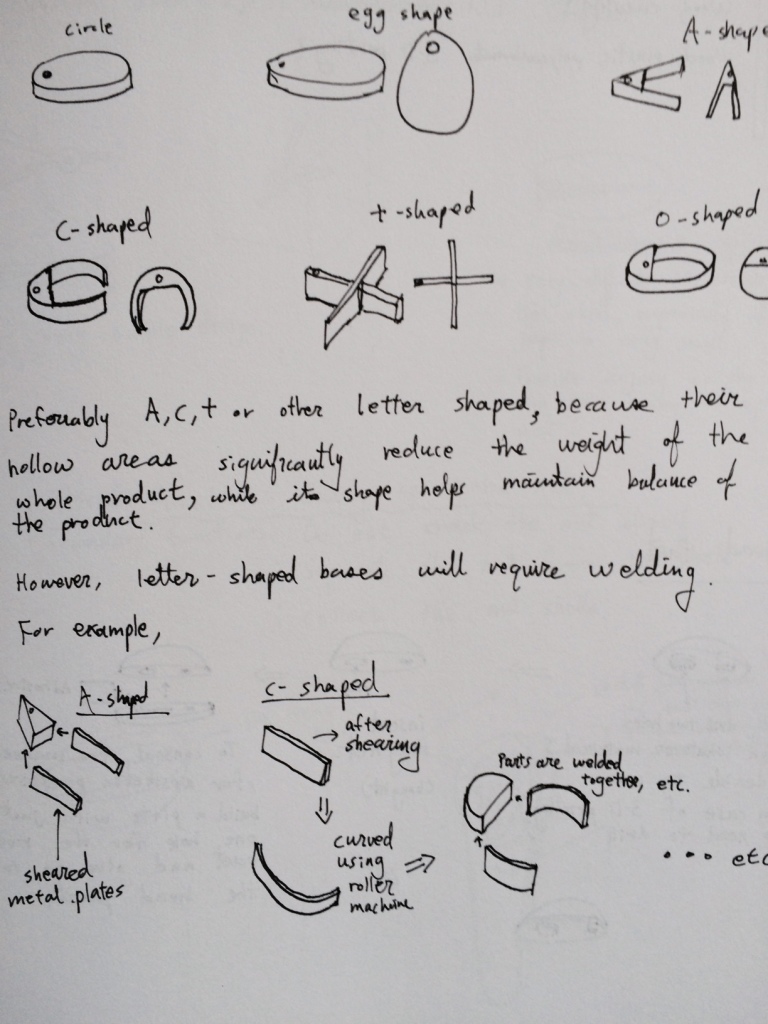 circle
egg shape
A-shape
C-shaped
t-shaped
O-shaped
Preferrably A, C, t or other letter shaped, because their
hollow areas significantly reduce the weight of the
whole product, while its shape helps maintain balance of
the product.
However, letter-shaped bases will require welding.
For example,
A-shaped
sheared
metal plates
C-shaped
→ after
shearing
curved
using
roller
machine
Parts are welded
together, etc.
... etc